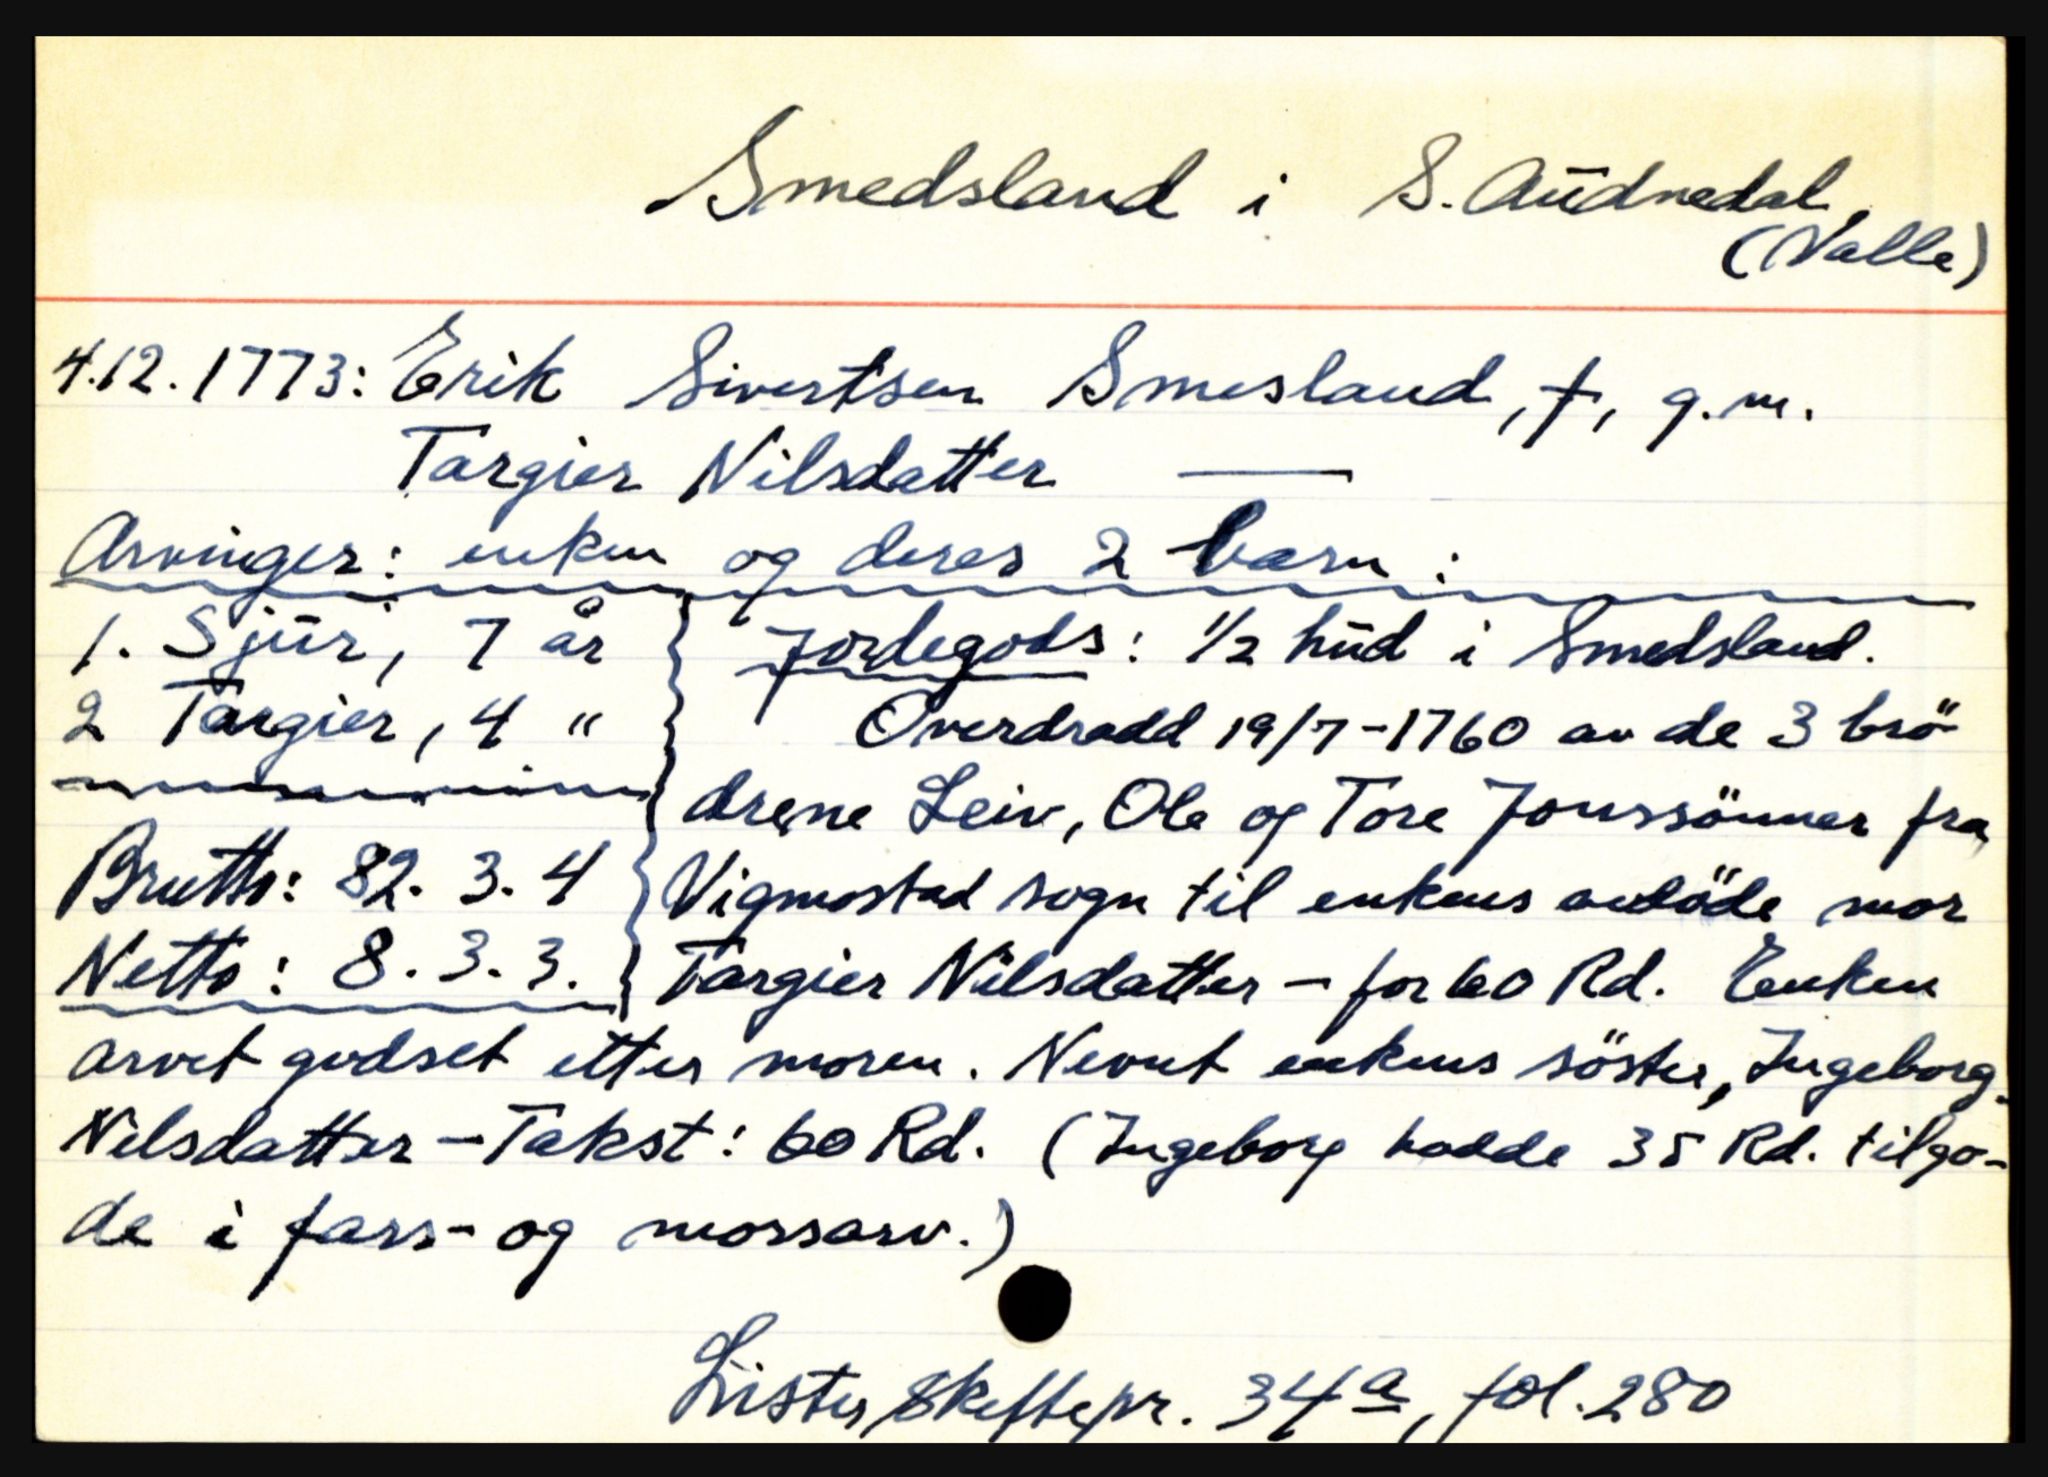 Smedsland i S. Audnedal,
(Valle)
4.12.1773: Erik Sivertsen Smesland, †, g.m.
Targier Nilsdatter —
Arvinger: enken og deres 2 barn:
1. Sjur, 7 år
2 Targier, 4 "
Brutto: 82. 3. 4
Netto: 8. 3. 3.
Jordegods: 1/2 hud i Smedsland.
Overdradd 19/7-1760 av de 3 brö-
drene Leiv, Ole og Tore Jonssönner fra
Vigmostad sogn til enkens avdöde mor
Targier Nilsdatter - for 60 Rd. Enken
arvet godset etter moren. Nevnt enkens söster, Ingeborg
Nilsdatter - Takst: 60 Rd. (Ingeborg hadde 35 Rd. tilgo-
de i fars- og morsarv.)
Lister skiftepr. 34a, fol. 280